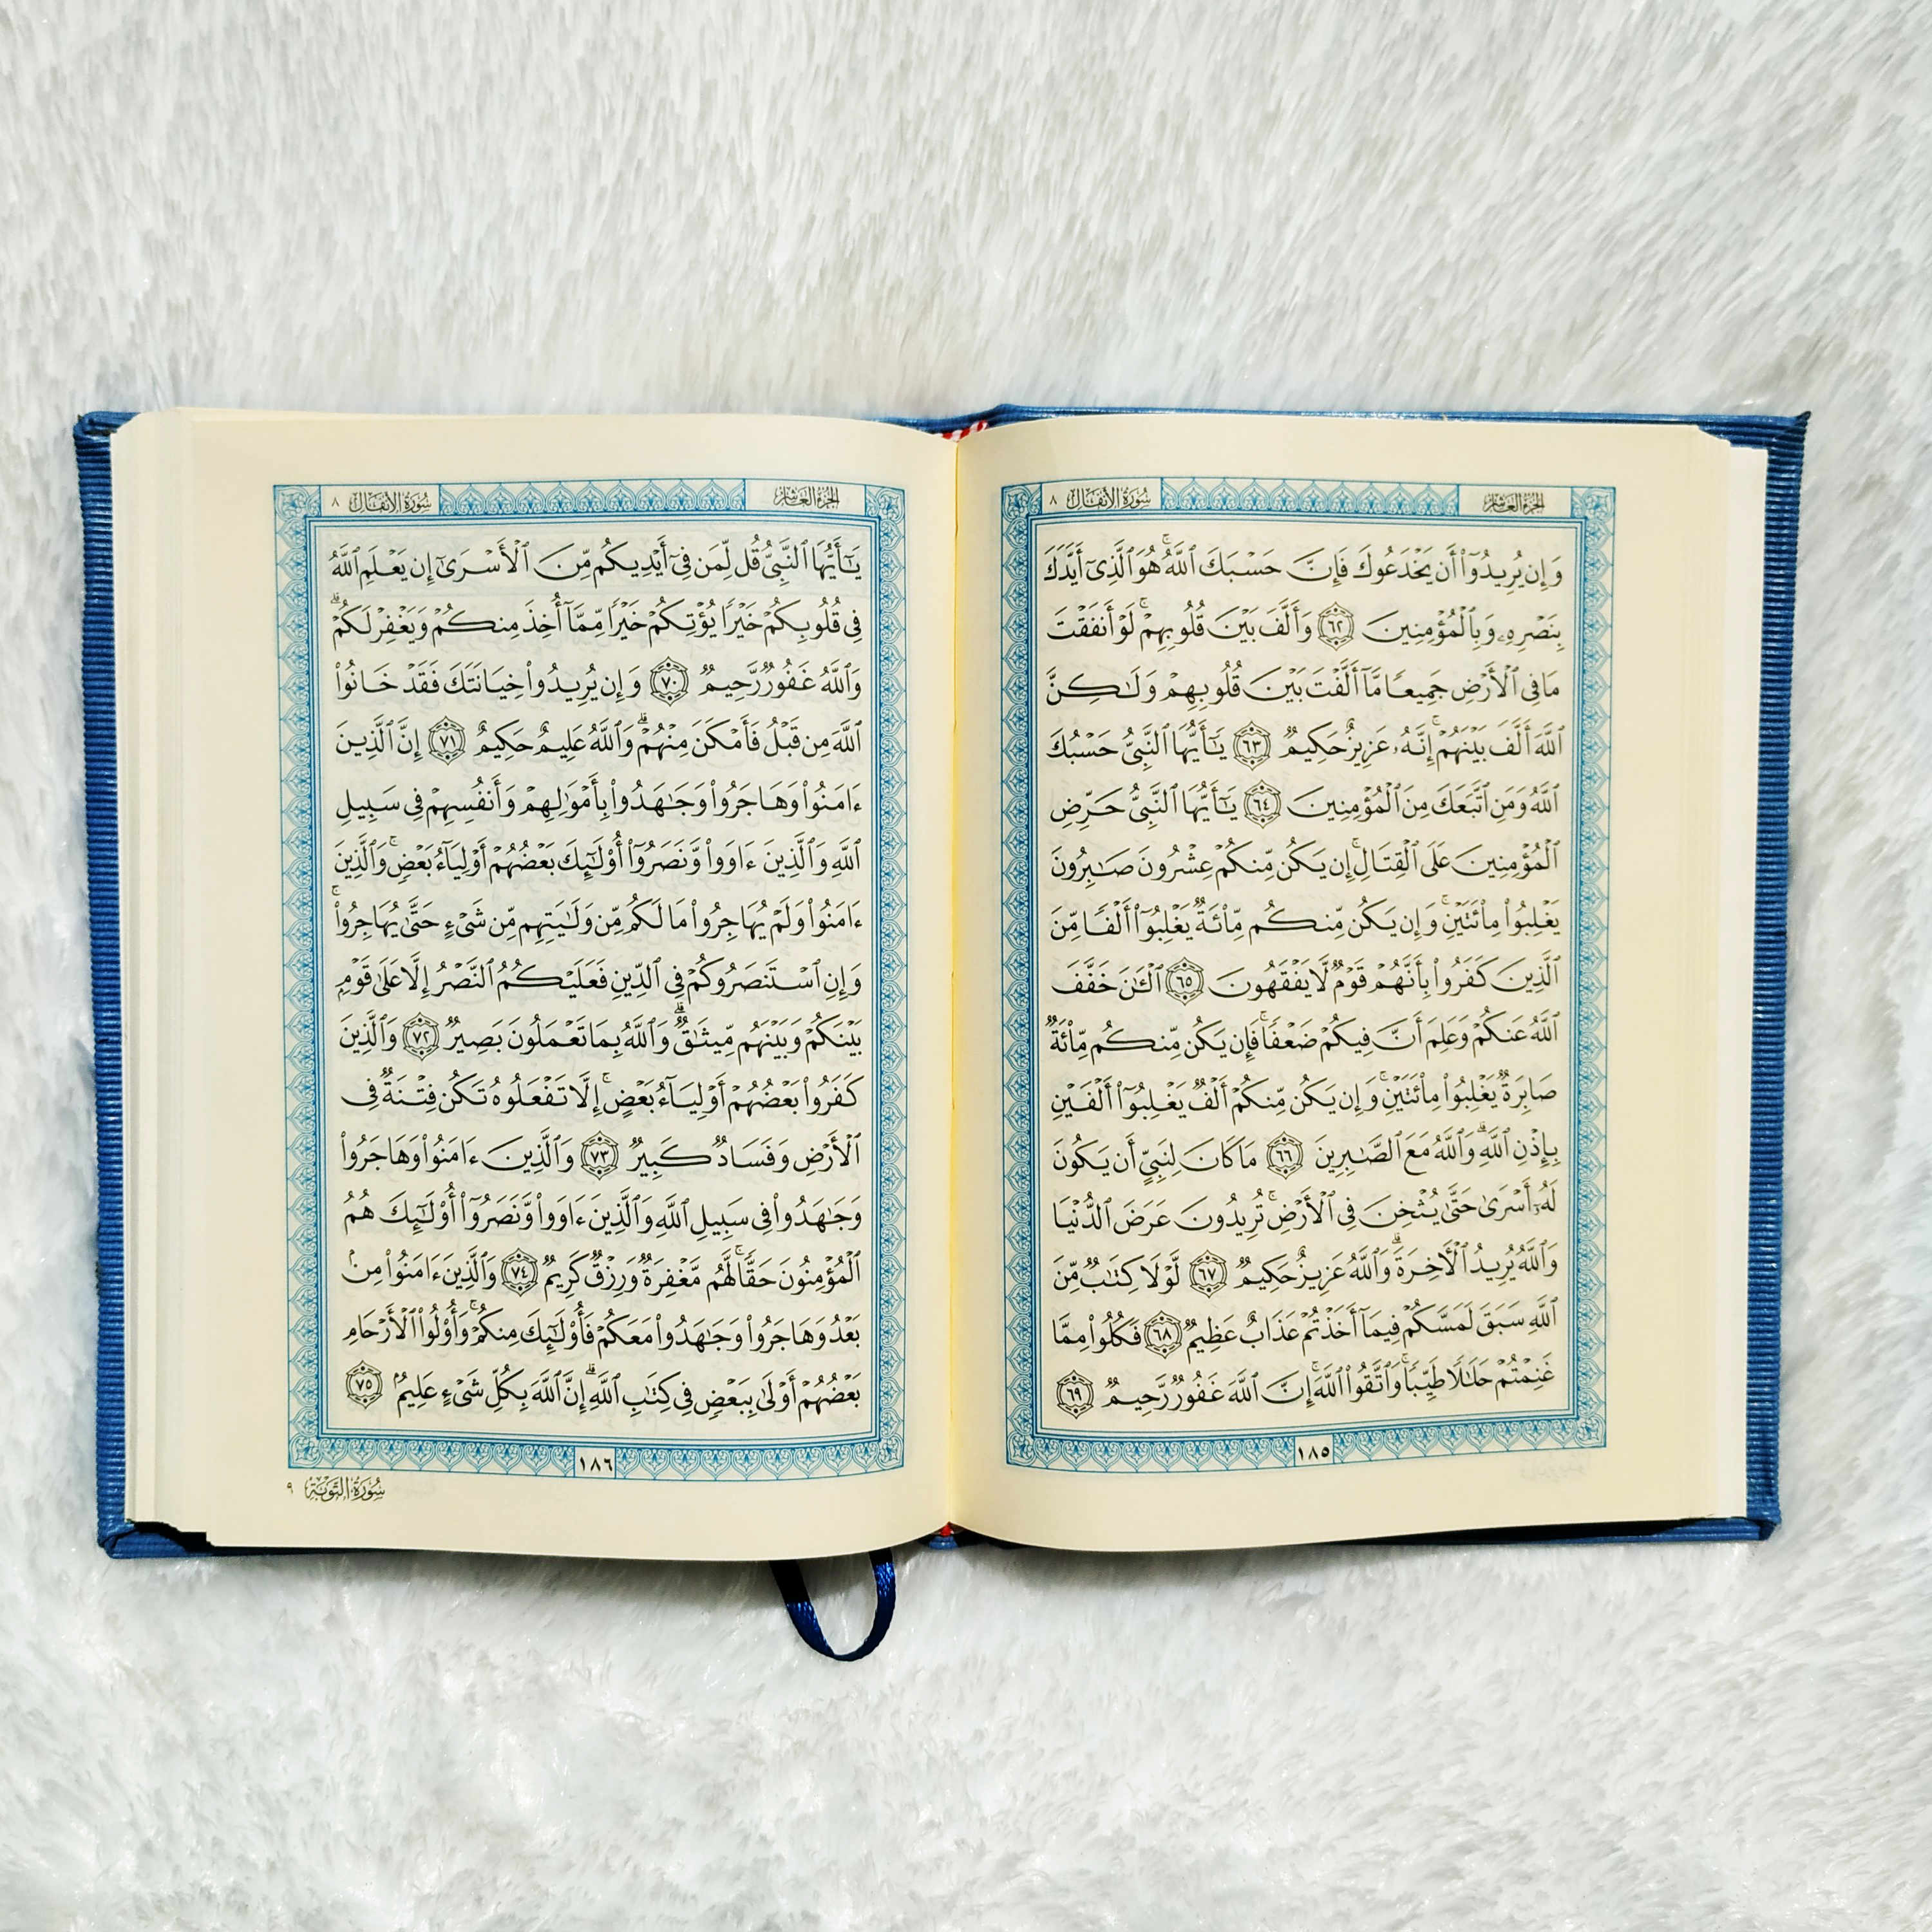 الجزء العاشر
سورة الأنفال ٨
وَإِن يُرِيدُوٓا۟ أَن يَخْدَعُوكَ فَإِنَّ حَسْبَكَ ٱللَّهُ ۚ هُوَ ٱلَّذِىٓ أَيَّدَكَ
بِنَصْرِهِۦ وَبِٱلْمُؤْمِنِينَ ٦٢ وَأَلَّفَ بَيْنَ قُلُوبِهِمْ ۚ لَوْ أَنفَقْتَ
مَا فِى ٱلْأَرْضِ جَمِيعًا مَّآ أَلَّفْتَ بَيْنَ قُلُوبِهِمْ وَلَـٰكِنَّ
ٱللَّهَ أَلَّفَ بَيْنَهُمْ ۚ إِنَّهُۥ عَزِيزٌ حَكِيمٌ ٦٣ يَـٰٓأَيُّهَا ٱلنَّبِىُّ حَسْبُكَ
ٱللَّهُ وَمَنِ ٱتَّبَعَكَ مِنَ ٱلْمُؤْمِنِينَ ٦٤ يَـٰٓأَيُّهَا ٱلنَّبِىُّ حَرِّضِ
ٱلْمُؤْمِنِينَ عَلَى ٱلْقِتَالِ ۚ إِن يَكُن مِّنكُمْ عِشْرُونَ صَـٰبِرُونَ
يَغْلِبُوا۟ مِا۟ئَتَيْنِ ۚ وَإِن يَكُن مِّنكُم مِّا۟ئَةٌ يَغْلِبُوٓا۟ أَلْفًا مِّنَ
ٱلَّذِينَ كَفَرُوا۟ بِأَنَّهُمْ قَوْمٌ لَّا يَفْقَهُونَ ٦٥ ٱلْـَٔـٰنَ خَفَّفَ
ٱللَّهُ عَنكُمْ وَعَلِمَ أَنَّ فِيكُمْ ضَعْفًا ۚ فَإِن يَكُن مِّنكُم مِّا۟ئَةٌ
صَابِرَةٌ يَغْلِبُوا۟ مِا۟ئَتَيْنِ ۚ وَإِن يَكُن مِّنكُمْ أَلْفٌ يَغْلِبُوٓا۟ أَلْفَيْنِ
بِإِذْنِ ٱللَّهِ ۗ وَٱللَّهُ مَعَ ٱلصَّـٰبِرِينَ ٦٦ مَا كَانَ لِنَبِىٍّ أَن يَكُونَ
لَهُۥٓ أَسْرَىٰ حَتَّىٰ يُثْخِنَ فِى ٱلْأَرْضِ ۚ تُرِيدُونَ عَرَضَ ٱلدُّنْيَا
وَٱللَّهُ يُرِيدُ ٱلْـَٔاخِرَةَ ۗ وَٱللَّهُ عَزِيزٌ حَكِيمٌ ٦٧ لَّوْلَا كِتَـٰبٌ مِّنَ
ٱللَّهِ سَبَقَ لَمَسَّكُمْ فِيمَآ أَخَذْتُمْ عَذَابٌ عَظِيمٌ ٦٨ فَكُلُوا۟ مِمَّا
غَنِمْتُمْ حَلَـٰلًا طَيِّبًا ۚ وَٱتَّقُوا۟ ٱللَّهَ ۚ إِنَّ ٱللَّهَ غَفُورٌ رَّحِيمٌ ٦٩
١٨٥
الجزء العاشر
سورة الأنفال ٨
يَـٰٓأَيُّهَا ٱلنَّبِىُّ قُل لِّمَن فِىٓ أَيْدِيكُم مِّنَ ٱلْأَسْرَىٰٓ إِن يَعْلَمِ ٱللَّهُ
فِى قُلُوبِكُمْ خَيْرًا يُؤْتِكُمْ خَيْرًا مِّمَّآ أُخِذَ مِنكُمْ وَيَغْفِرْ لَكُمْ ۗ
وَٱللَّهُ غَفُورٌ رَّحِيمٌ ٧٠ وَإِن يُرِيدُوا۟ خِيَانَتَكَ فَقَدْ خَانُوا۟
ٱللَّهَ مِن قَبْلُ فَأَمْكَنَ مِنْهُمْ ۗ وَٱللَّهُ عَلِيمٌ حَكِيمٌ ٧١ إِنَّ ٱلَّذِينَ
ءَامَنُوا۟ وَهَاجَرُوا۟ وَجَـٰهَدُوا۟ بِأَمْوَٰلِهِمْ وَأَنفُسِهِمْ فِى سَبِيلِ
ٱللَّهِ وَٱلَّذِينَ ءَاوَوا۟ وَّنَصَرُوٓا۟ أُو۟لَـٰٓئِكَ بَعْضُهُمْ أَوْلِيَآءُ بَعْضٍ ۚ وَٱلَّذِينَ
ءَامَنُوا۟ وَلَمْ يُهَاجِرُوا۟ مَا لَكُم مِّن وَلَـٰيَتِهِم مِّن شَىْءٍ حَتَّىٰ يُهَاجِرُوا۟ ۚ
وَإِنِ ٱسْتَنصَرُوكُمْ فِى ٱلدِّينِ فَعَلَيْكُمُ ٱلنَّصْرُ إِلَّا عَلَىٰ قَوْمٍ
بَيْنَكُمْ وَبَيْنَهُم مِّيثَـٰقٌ ۗ وَٱللَّهُ بِمَا تَعْمَلُونَ بَصِيرٌ ٧٢ وَٱلَّذِينَ
كَفَرُوا۟ بَعْضُهُمْ أَوْلِيَآءُ بَعْضٍ ۚ إِلَّا تَفْعَلُوهُ تَكُن فِتْنَةٌ فِى
ٱلْأَرْضِ وَفَسَادٌ كَبِيرٌ ٧٣ وَٱلَّذِينَ ءَامَنُوا۟ وَهَاجَرُوا۟
وَجَـٰهَدُوا۟ فِى سَبِيلِ ٱللَّهِ وَٱلَّذِينَ ءَاوَوا۟ وَّنَصَرُوٓا۟ أُو۟لَـٰٓئِكَ هُمُ
ٱلْمُؤْمِنُونَ حَقًّا ۚ لَّهُم مَّغْفِرَةٌ وَرِزْقٌ كَرِيمٌ ٧٤ وَٱلَّذِينَ ءَامَنُوا۟ مِنۢ
بَعْدُ وَهَاجَرُوا۟ وَجَـٰهَدُوا۟ مَعَكُمْ فَأُو۟لَـٰٓئِكَ مِنكُمْ ۚ وَأُو۟لُوا۟ ٱلْأَرْحَامِ
بَعْضُهُمْ أَوْلَىٰ بِبَعْضٍ فِى كِتَـٰبِ ٱللَّهِ ۗ إِنَّ ٱللَّهَ بِكُلِّ شَىْءٍ عَلِيمٌۢ ٧٥
١٨٦
سورة التوبة ٩